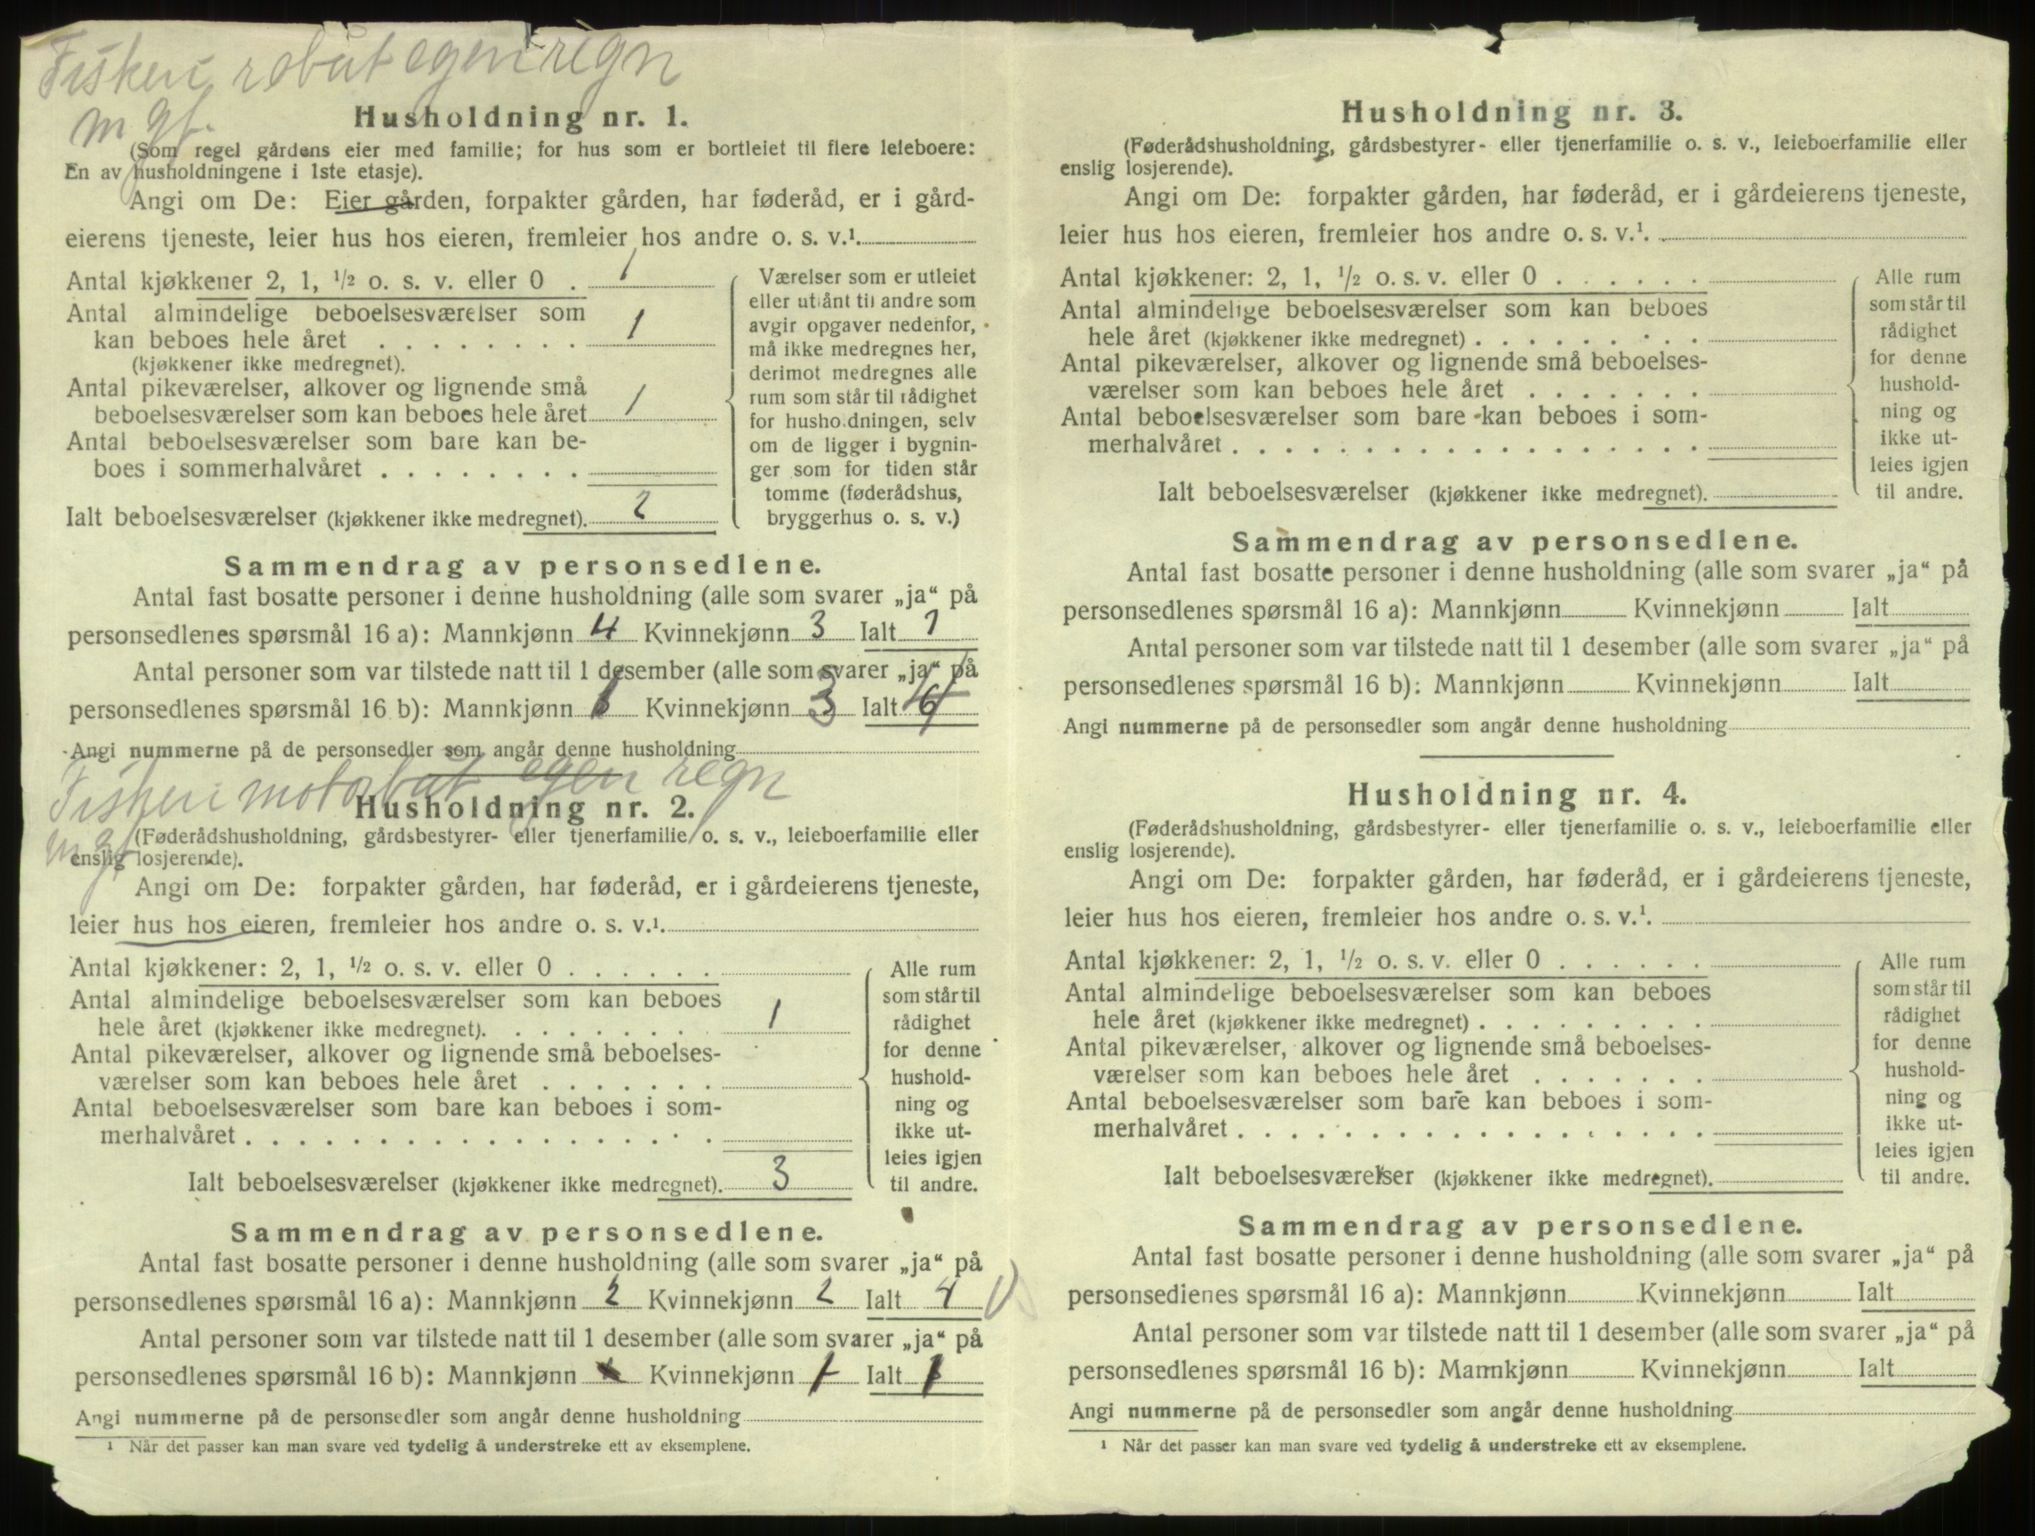 Fiskeri robåt egen regn
m gf.
Husholdning nr. 1.
(Som regel gårdens eier med familie; for hus som er bortleiet til flere leieboere:
En av husholdningene i 1ste etasje).
Angi om De: Eier gården, forpakter gården, har føderåd, er i gård-
eierens tjeneste, leier hus hos eieren, fremleier hos andre o. s. v.¹.
Antal kjøkkener 2, 1, ½ o. s. v. eller 0 . 1
Antal almindelige beboelsesværelser som
kan beboes hele året . . . . . . . . 1
(kjøkkener ikke medregnet).
Antal pikeværelser, alkover og lignende små
beboelsesværelser som kan beboes hele året 1
Antal beboelsesværelser som bare kan be-
boes i sommerhalvåret . . . . . . . .
Ialt beboelsesværelser (kjøkkener ikke medregnet). 2
Værelser som er utleiet
eller utlånt til andre som
avgir opgaver nedenfor,
må ikke medregnes her,
derimot medregnes alle
rum som står til rådighet
for husholdningen, selv
om de ligger i bygnin-
ger som for tiden står
tomme (føderådshus,
bryggerhus o. s. v.)
Sammendrag av personsedlene.
Antal fast bosatte personer i denne husholdning (alle som svarer „ja“ på
personsedlenes spørsmål 16 a): Mannkjønn 4 Kvinnekjønn 3 Ialt 7
Antal personer som var tilstede natt til 1 desember (alle som svarer „ja“ på
personsedlenes spørsmål 16 b): Mannkjønn Kvinnekjønn 3 Ialt
Angi nummerne på de personsedler som angår denne husholdning
Fiskeri motorbåt egen regn
m gf
Husholdning nr. 2.
(Føderådshusholdning, gårdsbestyrer- eller tjenerfamilie o. s. v., leieboerfamilie eller
enslig losjerende).
Angi om De: forpakter gården, har føderåd, er i gårdeierens tjeneste,
leier hus hos eieren, fremleier hos andre o. s. v.¹.
Antal kjøkkener: 2, 1, ½ o. s. v. eller 0 . . . . . .
Antal almindelige beboelsesværelser som kan beboes
hele året (kjøkkener ikke medregnet). . . . . . . . 1
Antal pikeværelser, alkover og lignende små beboelses-
værelser som kan beboes hele året . . . . . . .
Antal beboelsesværelser som bare kan beboes i som-
merhalvåret . . . . . . . . . . . . . . . . . .
Ialt beboelsesværelser (kjøkkener ikke medregnet). 3
Alle rum
som står til
rådighet
for denne
hushold-
ning og
ikke ut-
leies igjen
til andre.
Sammendrag av personsedlene.
Antal fast bosatte personer i denne husholdning (alle som svarer „ja“ på
personsedlenes spørsmål 16 a): Mannkjønn 2 Kvinnekjønn 2 Ialt 4
Antal personer som var tilstede natt til 1 desember (alle som svarer „ja“ på
personsedlenes spørsmål 16 b): Mannkjønn Kvinnekjønn 1 Ialt 1
Angi nummerne på de personsedler som angår denne husholdning
¹ Når det passer kan man svare ved tydelig å understreke ett av eksemplene.
Husholdning nr. 3.
(Føderådshusholdning, gårdsbestyrer- eller tjenerfamilie o. s. v., leieboerfamilie eller
enslig losjerende).
Angi om De: forpakter gården, har føderåd, er i gårdeierens tjeneste,
leier hus hos eieren, fremleier hos andre o. s. v.¹.
Antal kjøkkener: 2, 1, ½ o. s. v. eller 0 . . . . . .
Antal almindelige beboelsesværelser som kan beboes
hele året (kjøkkener ikke medregnet) . . . . . . . . .
Antal pikeværelser, alkover og lignende små beboelses-
værelser som kan beboes hele året . . . . . . .
Antal beboelsesværelser som bare kan beboes i som-
merhalvåret . . . . . . . . . . . . . . . . . .
Ialt beboelsesværelser (kjøkkener ikke medregnet).
Alle rum
som står til
rådighet
for denne
hushold-
ning og
ikke ut-
leies igjen
til andre.
Sammendrag av personsedlene.
Antal fast bosatte personer i denne husholdning (alle som svarer „ja“ på
personsedlenes spørsmål 16 a): Mannkjønn Kvinnekjønn Ialt
Antal personer som var tilstede natt til 1 desember (alle som svarer „ja“ på
personsedlenes spørsmål 16 b): Mannkjønn Kvinnekjønn Ialt
Angi nummerne på de personsedler som angår denne husholdning
Husholdning nr. 4.
(Føderådshusholdning, gårdsbestyrer- eller tjenerfamilie o. s. v., leieboerfamilie eller
enslig losjerende).
Angi om De: forpakter gården, har føderåd, er i gårdeierens tjeneste,
leier hus hos eieren, fremleier hos andre o. s. v.¹.
Antal kjøkkener: 2, 1, ½ o. s. v. eller 0 . . . . . .
Antal almindelige beboelsesværelser som kan beboes
hele året (kjøkkener ikke medregnet) . . . . . . . . .
Antal pikeværelser, alkover og lignende små beboelses-
værelser som kan beboes hele året . . . . . . .
Antal beboelsesværelser som bare kan beboes i som-
merhalvåret . . . . . . . . . . . . . . . . . .
Ialt beboelsesværelser (kjøkkener ikke medregnet).
Alle rum
som står til
rådighet
for denne
hushold-
ning og
ikke ut-
leies igjen
til andre.
Sammendrag av personsedlene.
Antal fast bosatte personer i denne husholdning (alle som svarer „ja“ på
personsedlenes spørsmål 16 a): Mannkjønn Kvinnekjønn Ialt
Antal personer som var tilstede natt til 1 desember (alle som svarer „ja“ på
personsedlenes spørsmål 16 b): Mannkjønn Kvinnekjønn Ialt
Angi nummerne på de personsedler som angår denne husholdning
¹ Når det passer kan man svare ved tydelig å understreke ett av eksemplene.